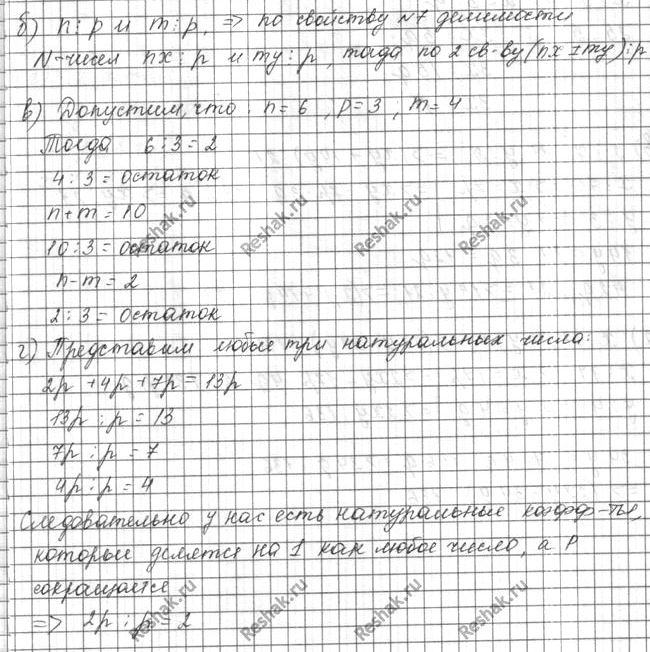 б) n⋮p и m⋮p, => по свойству №7 делимости
N-чисел nx⋮p и my⋮p, тогда по 2 св-ву (nx±my)⋮p
в) Допустим, что: n=6, p=3; m=4
Тогда 6:3=2
4:3= остаток
n+m=10
10:3= остаток
n-m=2
2:3= остаток
г) Представим любые три натуральных числа:
2p+4p+7p=13p
13p:p=13
7p:p=7
4p:p=4
Следовательно у нас есть натуральные коэфф-ты,
которые делятся на 1 как любое число, а P
сокращается
=> 2p:p=2
Reshak.ru
Reshak.ru
Reshak.ru
Reshak.ru
Reshak.ru
Reshak.ru
Reshak.ru
Reshak.ru